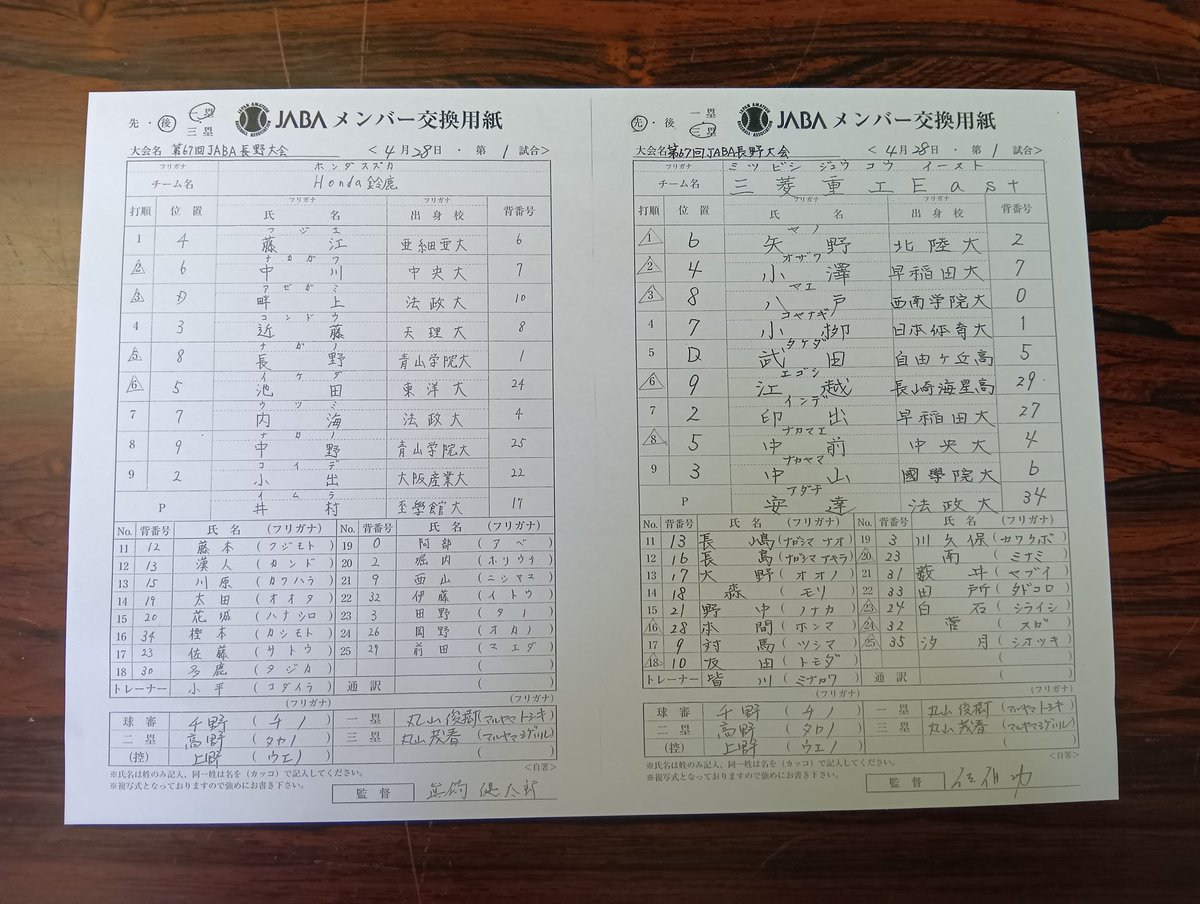 先・後 一塁 三塁 JABA メンバー交換用紙
大会名 第67回JABA長野大会 <4月28日・第1試合>
フリガナ ホンダスズカ
チーム名 Honda鈴鹿
打順 位置 フリガナ 氏名 フリガナ 出身校 背番号
フジエ
1 4 藤江 亜細亜大 6
ナカガワ
2 6 中川 中央大 7
アゼガミ
3 D 畔上 法政大 10
コンドウ
4 3 近藤 天理大 8
ナガノ
5 8 長野 青山学院大 1
イケダ
6 5 池田 東洋大 24
ウツミ
7 7 内海 法政大 4
ナカノ
8 9 中野 青山学院大 25
コイデ
9 2 小出 大阪産業大 22
イムラ
P 井村 至學館大 17
No. 背番号 氏名 (フリガナ) No. 背番号 氏名 (フリガナ)
11 12 藤本 (フジモト) 19 0 阿部 (アベ)
12 13 漢人 (カンド) 20 2 堀内 (ホリウチ)
13 15 川原 (カワハラ) 21 9 西山 (ニシヤマ)
14 19 太田 (オオタ) 22 32 伊藤 (イトウ)
15 20 花城 (ハナシロ) 23 3 田野 (タノ)
16 34 樫本 (カシモト) 24 26 岡野 (オカノ)
17 23 佐藤 (サトウ) 25 29 前田 (マエダ)
18 30 多鹿 (タジカ) ( )
トレーナー 小平 (コダイラ) 通訳 ( )
(フリガナ) (フリガナ)
球審 千野 (チノ) 一塁 丸山俊郷 (マルヤマトシキ)
二塁 高野 (タカノ) 三塁 丸山茂春 (マルヤマシゲハル)
(控) 上野 (ウエノ) ( )
<自署>
※氏名は姓のみ記入、同一姓は名を(カッコ)で記入してください。
※複写式となっておりますので強めにお書き下さい。
監督 眞鍋健太郎
先・後 一塁 三塁 JABA メンバー交換用紙
大会名 第67回JABA長野大会 <4月28日・第1試合>
フリガナ ミツビシジュウコウイースト
チーム名 三菱重工East
打順 位置 フリガナ 氏名 フリガナ 出身校 背番号
ヤノ
1 6 矢野 北陸大 2
オザワ
2 4 小澤 早稲田大 7
マエ
3 8 八戸 西南学院大 0
コヤナギ
4 7 小栁 日本体育大 1
タケダ
5 D 武田 自由ヶ丘高 5
エゴシ
6 9 江越 長崎海星高 29
インデ
7 2 印出 早稲田大 27
ナカマエ
8 5 中前 中央大 4
ナカヤマ
9 3 中山 國學院大 6
アダチ
P 安達 法政大 34
No. 背番号 氏名 (フリガナ) No. 背番号 氏名 (フリガナ)
11 13 長嶋 (ナガシマ ナオ) 19 3 川久保 (カワクボ)
12 16 長島 (ナガシマ アキラ) 20 23 南 (ミナミ)
13 17 大野 (オオノ) 21 31 藪井 (ヤブイ)
14 18 森 (モリ) 22 33 田所 (タドコロ)
15 21 野中 (ノナカ) 23 24 白石 (シライシ)
16 28 本間 (ホンマ) 24 32 菅 (スガ)
17 9 対馬 (ツシマ) 25 35 汐月 (シオツキ)
18 10 友田 (トモダ) ( )
トレーナー 皆川 (ミナカワ) 通訳 ( )
(フリガナ) (フリガナ)
球審 千野 (チノ) 一塁 丸山俊郷 (マルヤマトシキ)
二塁 高野 (タカノ) 三塁 丸山茂春 (マルヤマシゲハル)
(控) 上野 (ウエノ) ( )
<自署>
※氏名は姓のみ記入、同一姓は名を(カッコ)で記入してください。
※複写式となっておりますので強めにお書き下さい。
監督